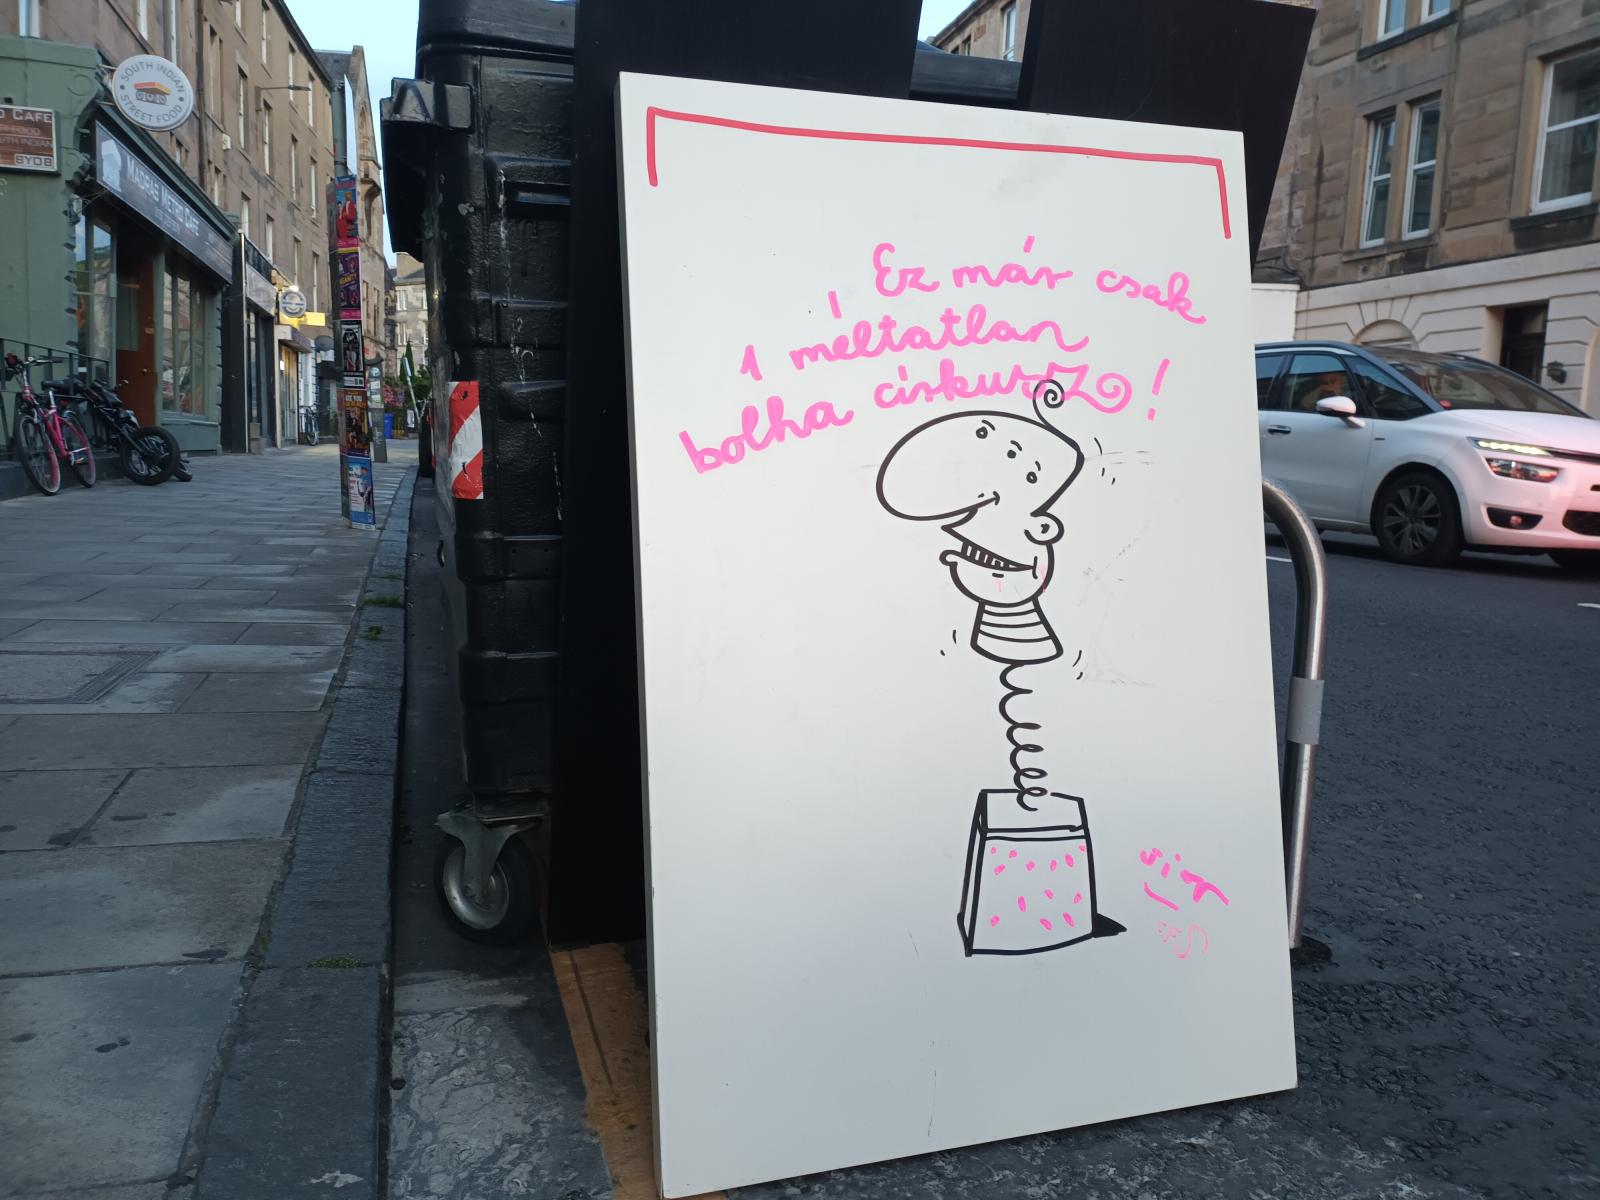 SOUTH INDIAN
STREET FOOD
CAFE
BYOB
MADRAS METRO CAFE
Ez már csak
1 méltatlan
bolha cirkusz!